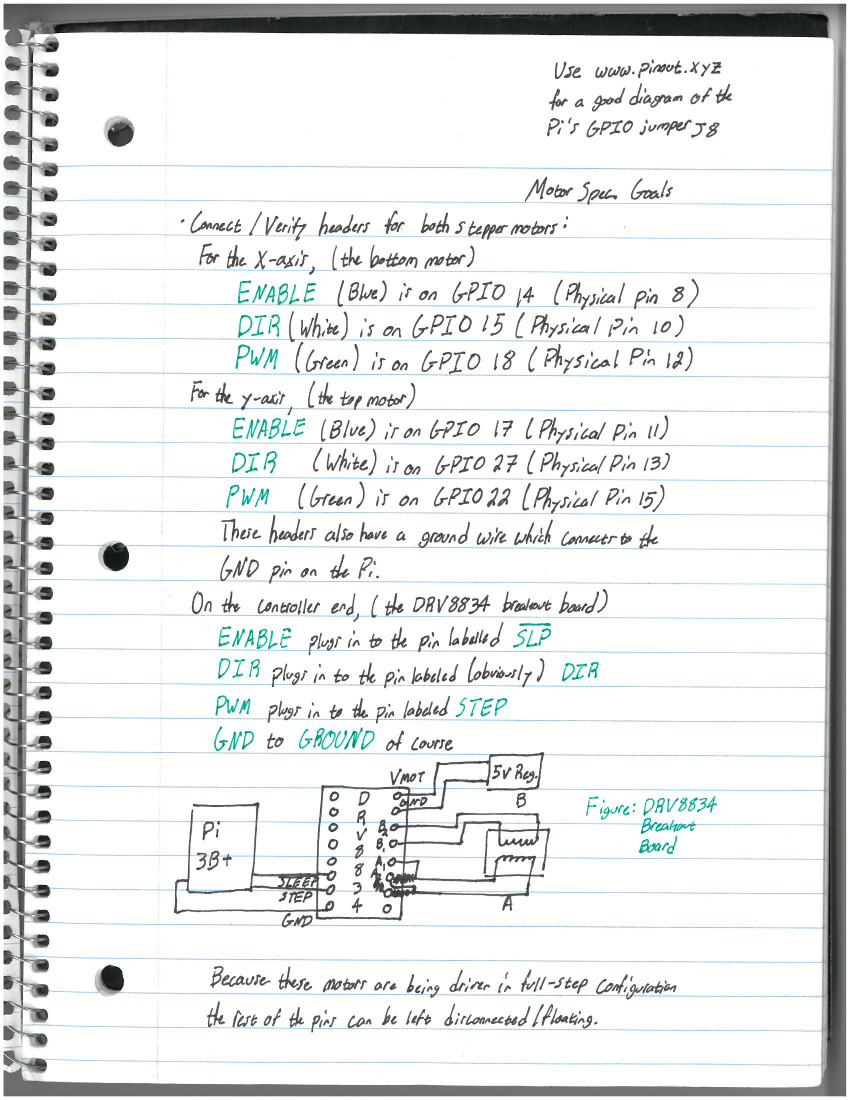 Use www.pinout.xyz
for a good diagram of the
Pi's GPIO jumper J8
Motor Spec Goals
· Connect / Verify headers for both stepper motors:
For the X-axis, (the bottom motor)
ENABLE (Blue) is on GPIO 14 (Physical pin 8)
DIR (White) is on GPIO 15 (Physical Pin 10)
PWM (Green) is on GPIO 18 (Physical Pin 12)
For the y-axis, (the top motor)
ENABLE (Blue) is on GPIO 17 (Physical Pin 11)
DIR (White) is on GPIO 27 (Physical Pin 13)
PWM (Green) is on GPIO 22 (Physical Pin 15)
These headers also have a ground wire which connects to the
GND pin on the Pi.
On the controller end, (the DRV8834 breakout board)
ENABLE plugs in to the pin labelled S̅L̅P̅
DIR plugs in to the pin labeled (obviously) DIR
PWM plugs in to the pin labeled STEP
GND to GROUND of course
VMOT
5V Reg.
GND
B
Pi
3B+
DRV8834
B2
B1
A1
SLEEP
STEP
GND
A
Figure: DRV8834
Breakout
Board
Because these motors are being driven in full-step configuration
the rest of the pins can be left disconnected/floating.